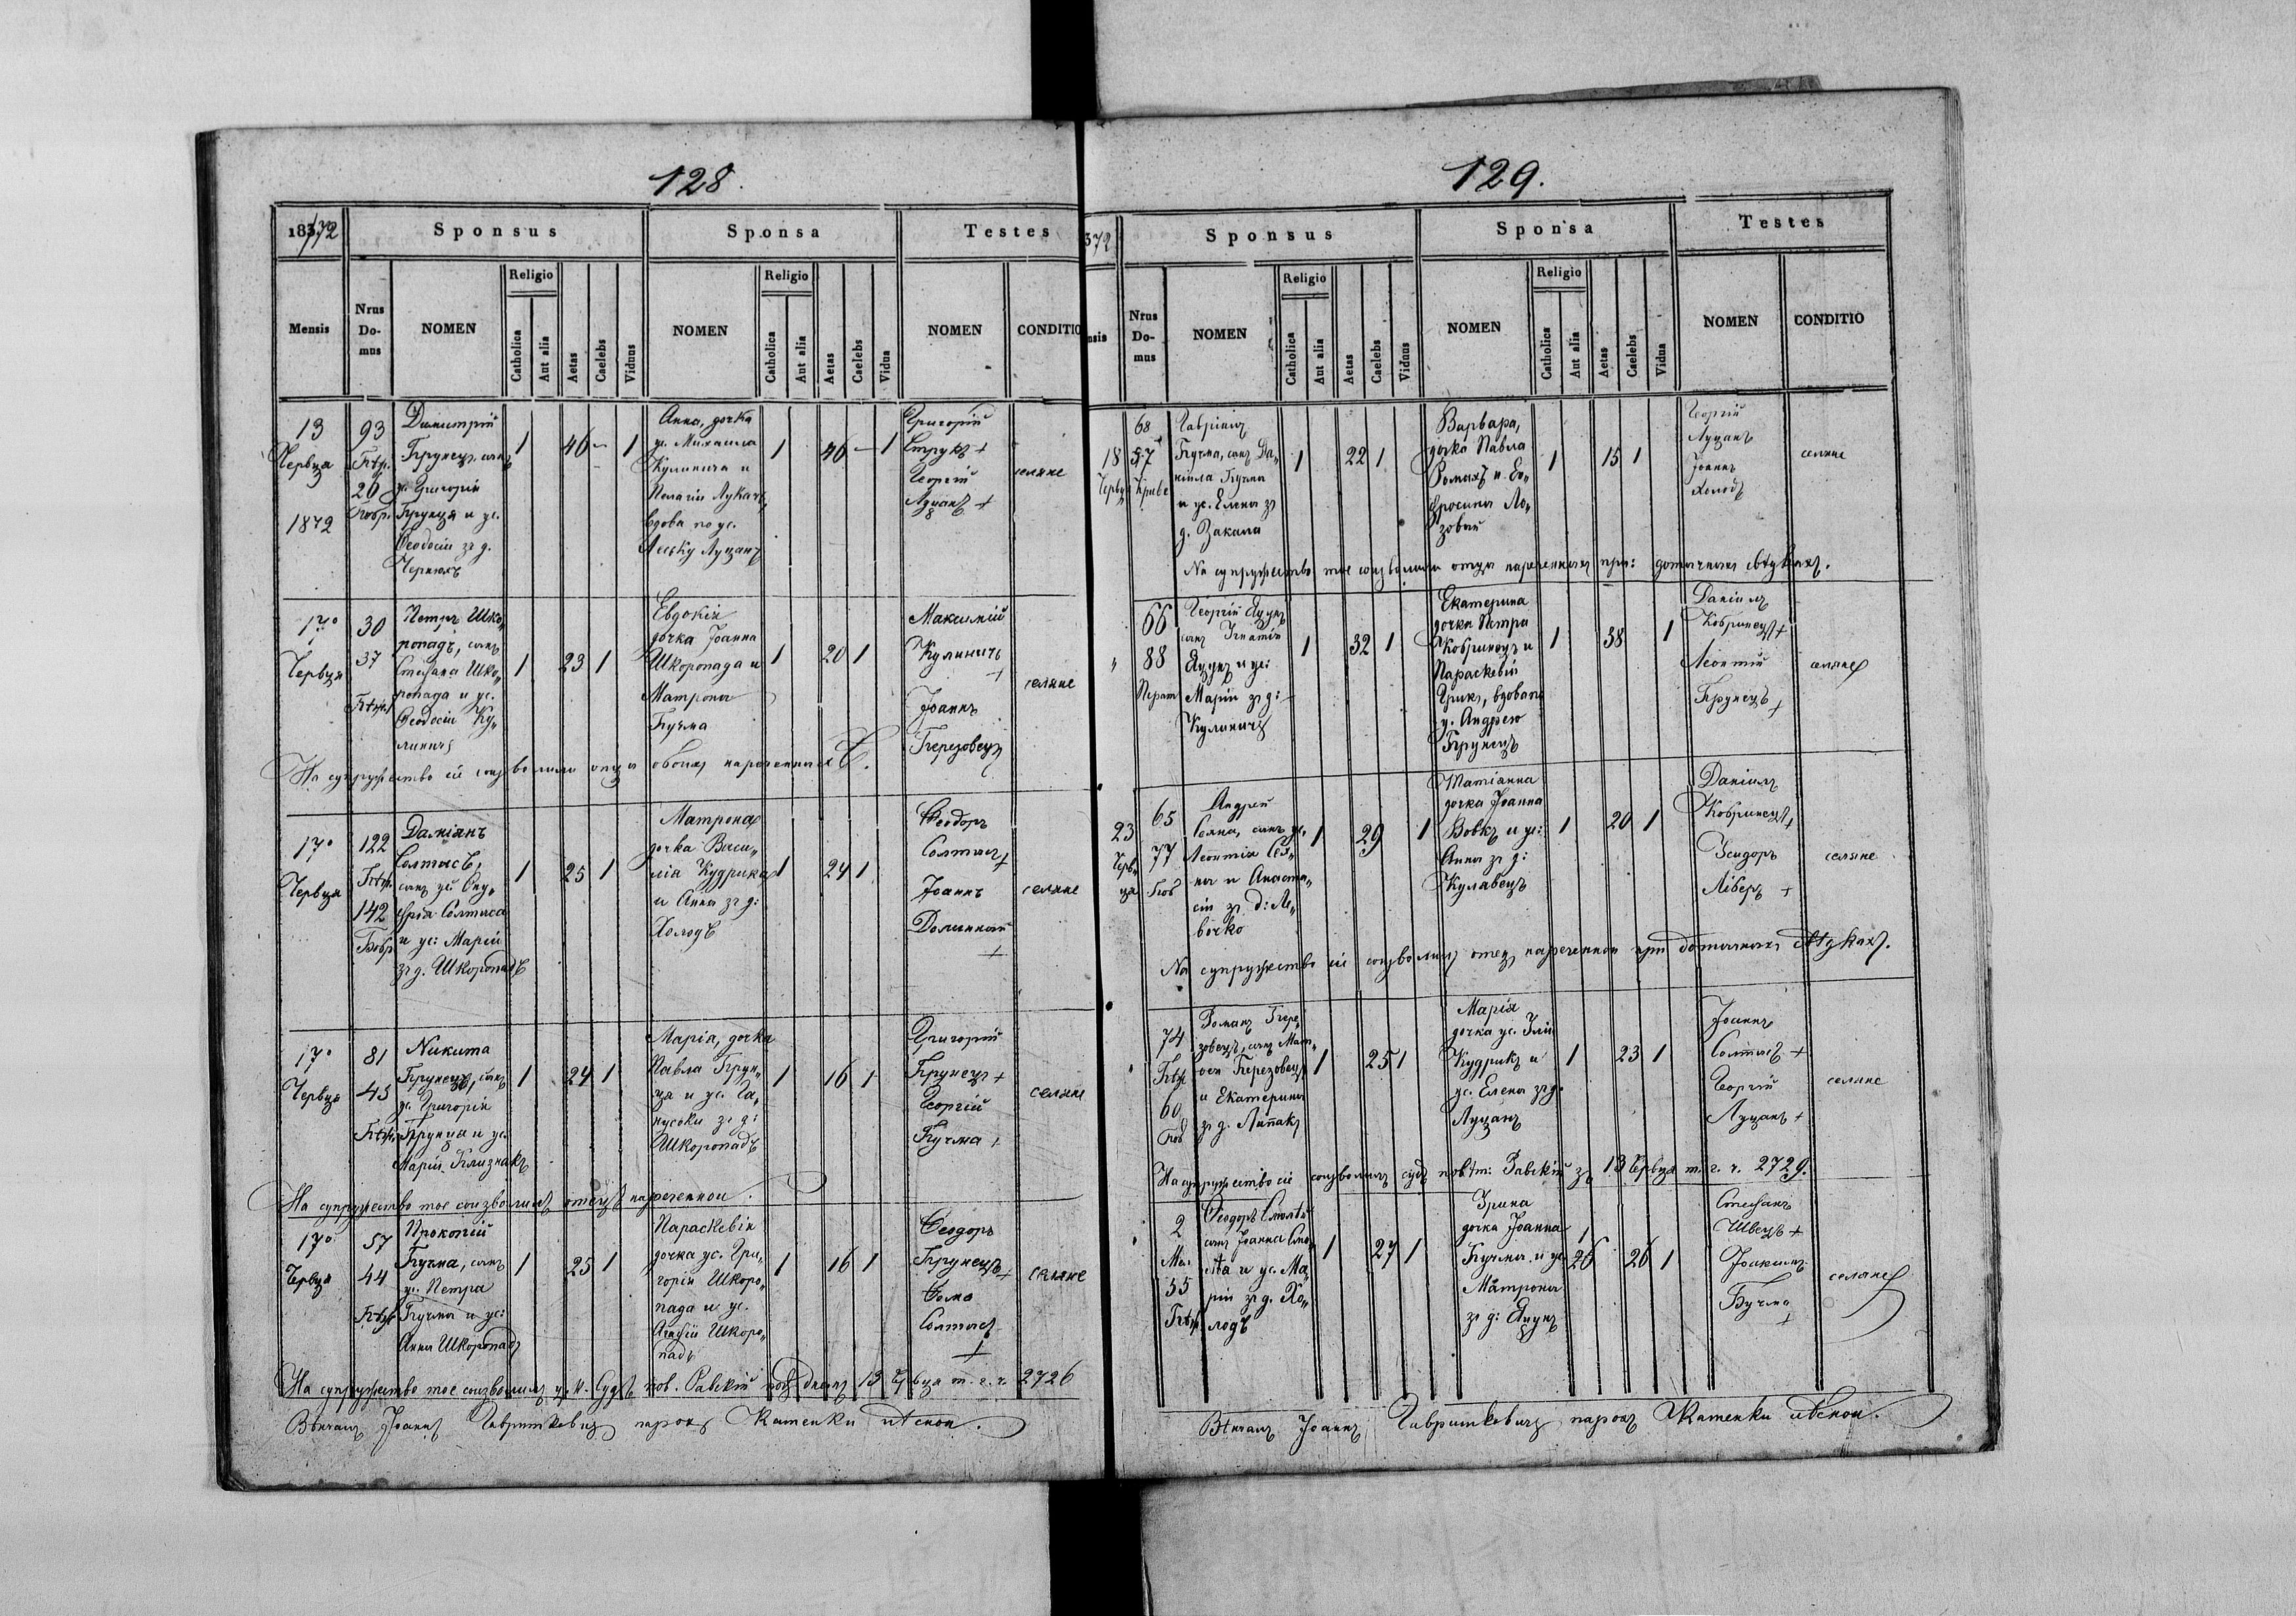 128.
183/72
Sponsus
Sponsa
Testes
Mensis
Nrus Do-mus
NOMEN
Religio
Catholica
Aut alia
Aetas
Caelebs
Viduus
NOMEN
Religio
Catholica
Aut alia
Aetas
Caelebs
Vidua
NOMEN
CONDITIO
13
Червца
1872
93
20
Димитрій
Грунець, сынъ
ус. Григорія
Грунця и ус.
Феодосіи зъ д.
1
46
1
Анна, дочка
ус. Михаила
Кулинича и
Пелагіи Лукачъ,
вдова по ус.
Леську Луцанъ
1
46
1
Григорій
Струкъ +
Георгій
Луцанъ +
селяне
17º
Червця
30
37
Петръ Шко„
ропадъ, сынъ
Стефана Шко„
ропада и ус.
Феодосіи Ку„
линичъ
1
23
1
Евдокія
дочка Іоанна
Шкоропада и
Матрона
Бучма
1
20
1
Максимій
Куличичъ
+
Іоаннъ
Березовецъ
селяне
На супружество сіе соизволили отци обоихъ нареченныхъ.
17º
Червця
122
142
Даміянъ
Солтысъ,
сынъ ус. Ону„
фрія Солтыса
и ус: Маріи
зъ д. Шкоропадъ
1
25
1
Матрона
дочка Васи„
лія Кудрика
и Анна зъ д:
Холодъ
1
24
1
Феодоръ
Солтысъ +
Іоаннъ
Долинный
+
селяне
17º
Червця
81
45
Никита
Грунецъ, сынъ
ус. Григорія
Грунця и ус.
Маріи Близнакъ
1
24
1
Марія, дочка
Павла Грун„
ця и ус. Га„
нуськи зъ д:
Шкоропадъ
1
16
1
Григорій
Грунецъ +
Георгій
Бучма +
селяне
На супружество тое соизволилъ отецъ нареченнои.
17º
Червця
57
44
Прокопій
Бучма, сынъ
ус. Петра
Бучма и ус:
Анна Шкоропадъ
1
25
1
Параскевія
дочка ус. Гри„
горія Шкоро„
пада и ус.
Агафіи Шкоро„
падъ
1
16
1
Феодоръ
Грунецъ +
Фома
Солтысъ
+
селяне
На супружество тое соизволилъ ц. к. Судъ пов. Равскій подъ днемъ 13 Червця т. г. ч. 2726
Вѣнчалъ Іоаннъ Гавришкевичъ парохъ Каменки лѣснои.
129.
372
Sponsus
Sponsa
Testes
nsis
Nrus Do-mus
NOMEN
Religio
Catholica
Aut alia
Aetas
Caelebs
Viduus
NOMEN
Religio
Catholica
Aut alia
Aetas
Caelebs
Vidua
NOMEN
CONDITIO
18
Червця
68
57
Гавріилъ
Бучма, сынъ Да„
ніила Бучма
и ус. Елена зъ
д. Закала
1
22
1
Варвара,
дочка Павла
Романъ и Ев„
фросина Ло„
зовый
1
15
1
Георгій
Луцанъ
Іоаннъ
Холодъ
селяне
На супружество тое соизволили отци нареченныхъ при: дотычныхъ свѣдкахъ.
"
66
88
Георгій Яцунъ
сынъ Игнатія
Яцунъ и ус:
Марія зъ д:
Куличичъ
1
32
1
Екатерина
дочка Петра
Кобринецъ и
Параскевія
Грикъ, вдова по
у. Андрею
Грунецъ
1
38
1
Даніилъ
Кобринецъ +
Леонтій
Грунецъ +
селяне
23
Черв„
ця
65
77
Андрей
Сеяна, сынъ ус.
Леонтія
и Анаста„
сіи зъ д: Ле„
вочко
1
29
1
Татіанна
дочка Іоанна
Вовкъ и ус:
Анна зъ д:
Кулавецъ
1
20
1
Даніилъ
Кобринецъ +
Исидоръ
Ліберъ +
селяне
На супружество сіе соизволилъ отецъ нареченнои при дотычныхъ свѣдкахъ.
74
60
Романъ Бере„
зовецъ, сынъ Мат„
фея Березовецъ
и Екатерина
зъ д. Липакъ
1
25
1
Марія
дочка ус. Иліи
Кудрикъ и
ус. Елена зъ д.
Луцанъ
1
23
1
Іоаннъ
Солтысъ +
Георгій
Луцанъ +
селяне
На супружество сіе соизволилъ судъ повѣт: Равскій зъ 13 Червця т. г. ч. 2729.
2
55
Феодоръ
сынъ Іоанна
и ус. Ма„
рія зъ д. Хо„
лодъ
1
27
1
Ирина
дочка Іоанна
Бучма и ус.
Матрона
зъ д: Яцунъ
1
26
26
1
Стефанъ
Швецъ +
Іоакимъ
Бучма
+
селяне
Вѣнчалъ Іоаннъ Гавришкевичъ парохъ Каменки лѣснои.